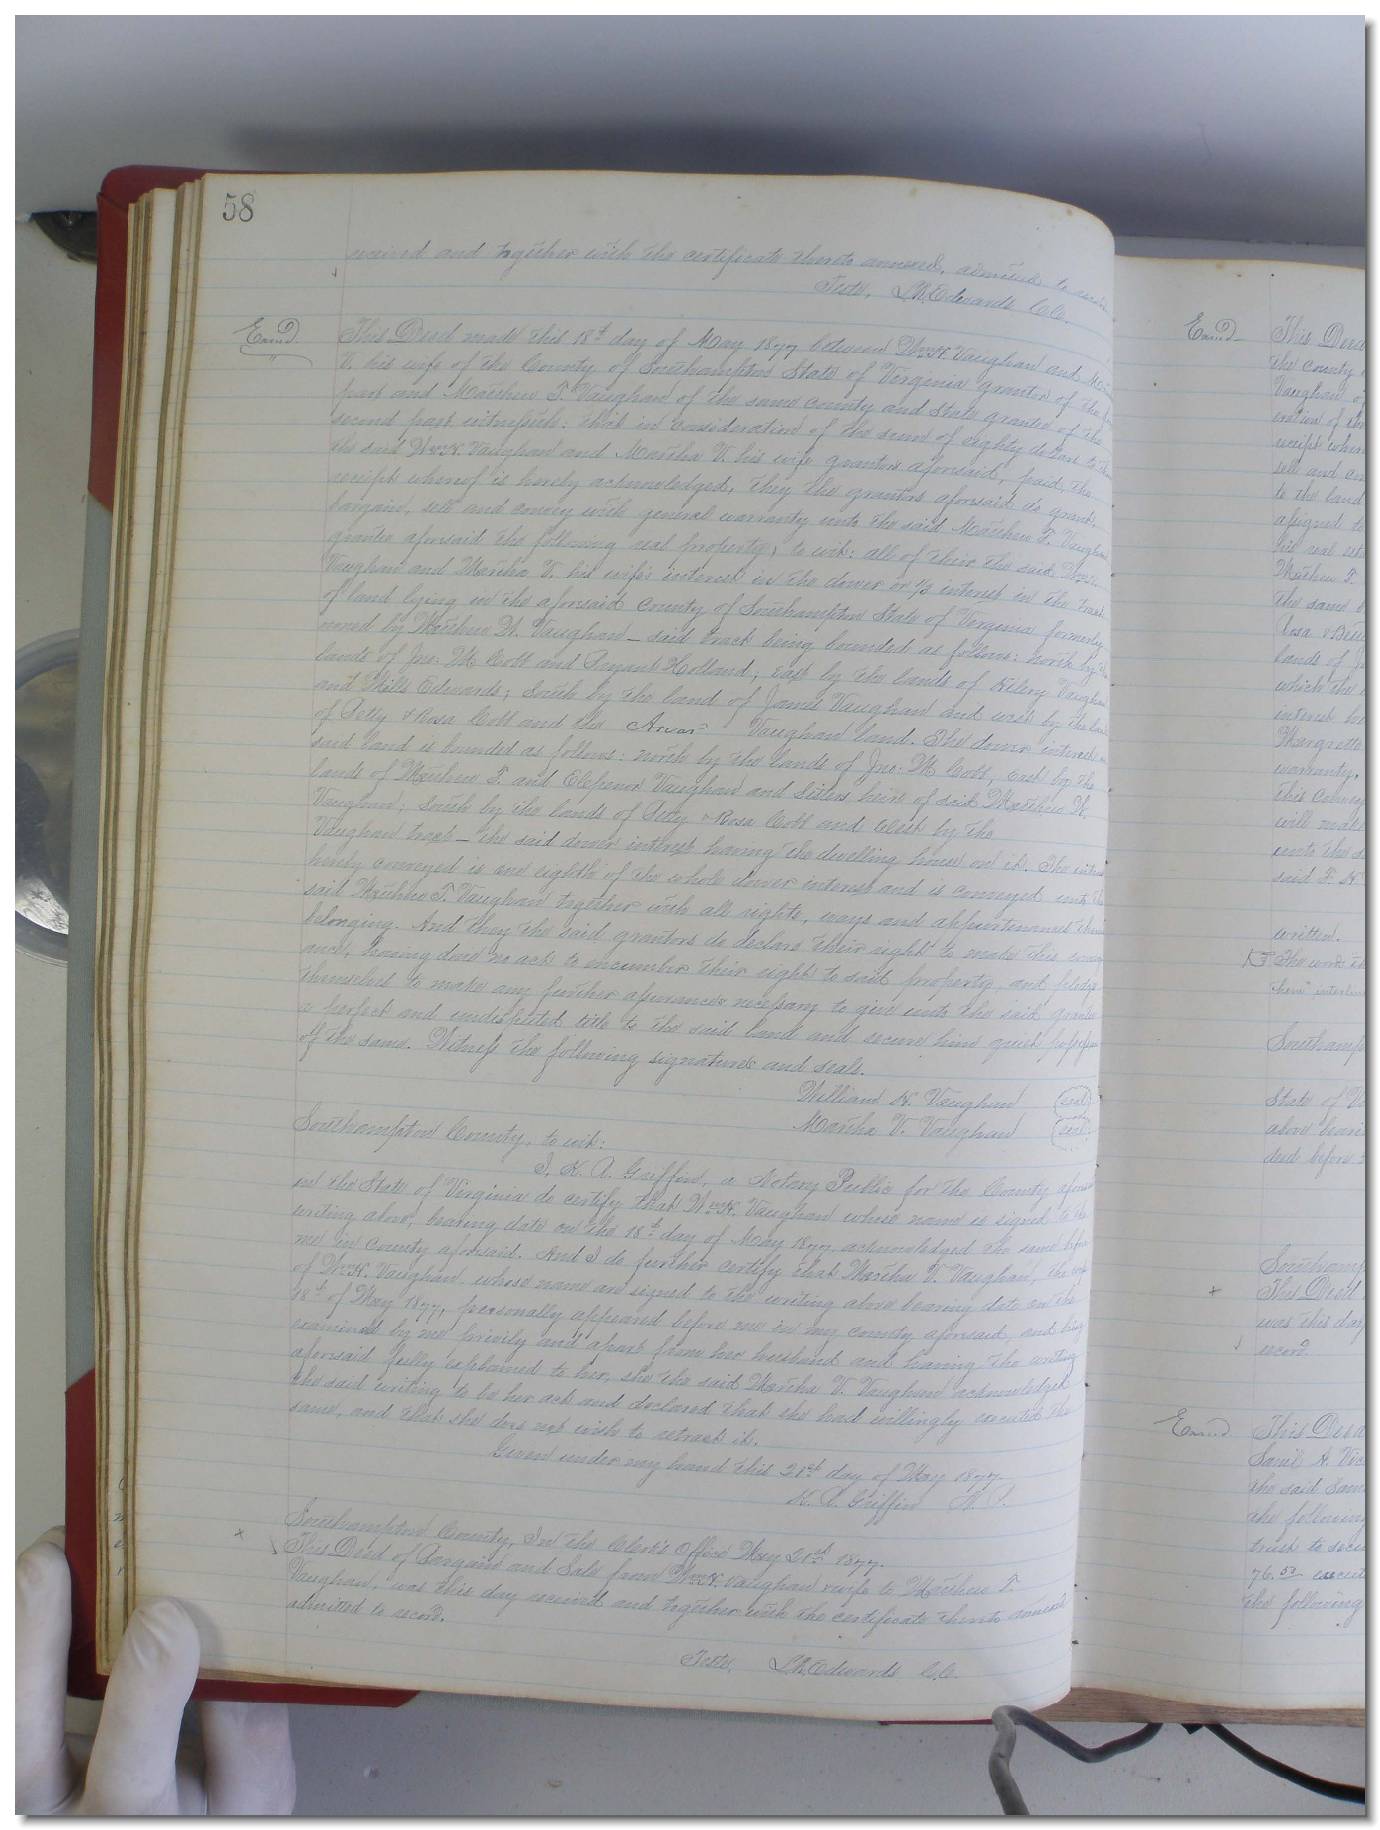 58
received and together with the certificate thereto annexed, admitted to record
Teste, L.R. Edwards C.C.
Exmd.
This Deed made this 18th day of May 1877 between Wm H. Vaughan and
V. his wife of the County of Southampton State of Virginia grantor of the
part and Matthew T. Vaughan of the same county and state grantee of the
second part witnesseth: that in consideration of the sum of eighty dollars to
the said Wm H. Vaughan and Martha V. his wife grantors aforsaid, paid, the
receipt whereof is hereby acknowledged, they the grantors aforsaid do grant,
bargain, sell and convey with general warranty unto the said Matthew T. Vaughan
grantee aforsaid the following real property, to wit: all of their the said Wm H.
Vaughan and Martha V. his wife's interest in the dower or 1/3 interest in the tract
of land lying in the aforsaid County of Southampton State of Virginia formerly
owned by Matthew W. Vaughan - said tract being bounded as follows: north by the
lands of Jno: M. Cobb and Bryant Holland, east by the lands of Vaughan
and Mills Edwards; South by the land of James Vaughan and west by the
of Petty & Rosa Cobb and the Vaughan land. The dower interest
said land is bounded as follows: north by the lands of Jno: M Cobb, east by the
lands of Matthew T. and Vaughan and sisters heirs of said Matthew W.
Vaughan; South by the lands of Petty & Rosa Cobb and West by the
Vaughan tract - the said dower interest having the dwelling house on it. The
hereby conveyed is one eighth of the whole dower interest and is conveyed unto the
said Matthew T. Vaughan together with all rights, ways and appurtenances
belonging. And they the said grantors do declare their right to make this
ance, having done no act to encumber their right to said property, and pledge
themselves to make any further assurances necessary to give unto the said grantee
a perfect and undisputed title to the said land and secure him quiet possession
of the same. Witness the following signatures and seals.
William H. Vaughan (seal)
Martha V. Vaughan (seal)
Southampton County, to wit:
I, K. A. Griffin, a Notary Public for the County
in the State of Virginia do certify that Wm H. Vaughan whose name is signed to the
writing above, bearing date on the 18th day of May 1877 acknowledged the same before
me in County aforsaid. And I do further certify that Martha V. Vaughan, the wife
of Wm H. Vaughan whose name are signed to the writing above bearing date on the
18th of May 1877, personally appeared before me in my county aforsaid, and being
examined by me privily and apart from her husband and having the writing
aforsaid fully explained to her, she the said Martha V. Vaughan acknowledged
the said writing to be her act and declared that she had willingly executed the
same, and that she does not wish to retract it.
Given under my hand this 21st day of May 1877.
K. A. Griffin N. P.
Southampton County, In the Clerk's Office May 21st 1877.
This Deed of Bargain and Sale from Wm H. Vaughan & wife to Matthew T.
Vaughan, was this day received and together with the certificate thereto annexed
admitted to record.
Teste, L.R. Edwards C.C.
Exmd
This Deed
the county
Vaughan
receipt
sell and
to the land
assigned to
his real
Mathew T.
the same
lands of
which the
interest
Margrette
warranty.
this
will make
unto the
said
written.
The word
Southamp
State of
above
deed before
Southamp
This Deed
was this day
record.
Exmd
This Deed
Saml
the said Sam
the following
trust to
76.53
the following